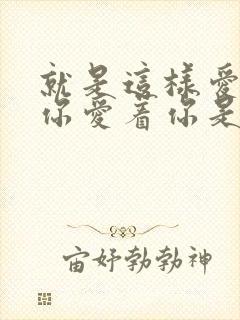 就是這樣愛
你愛着你是
宙妤勃勃神